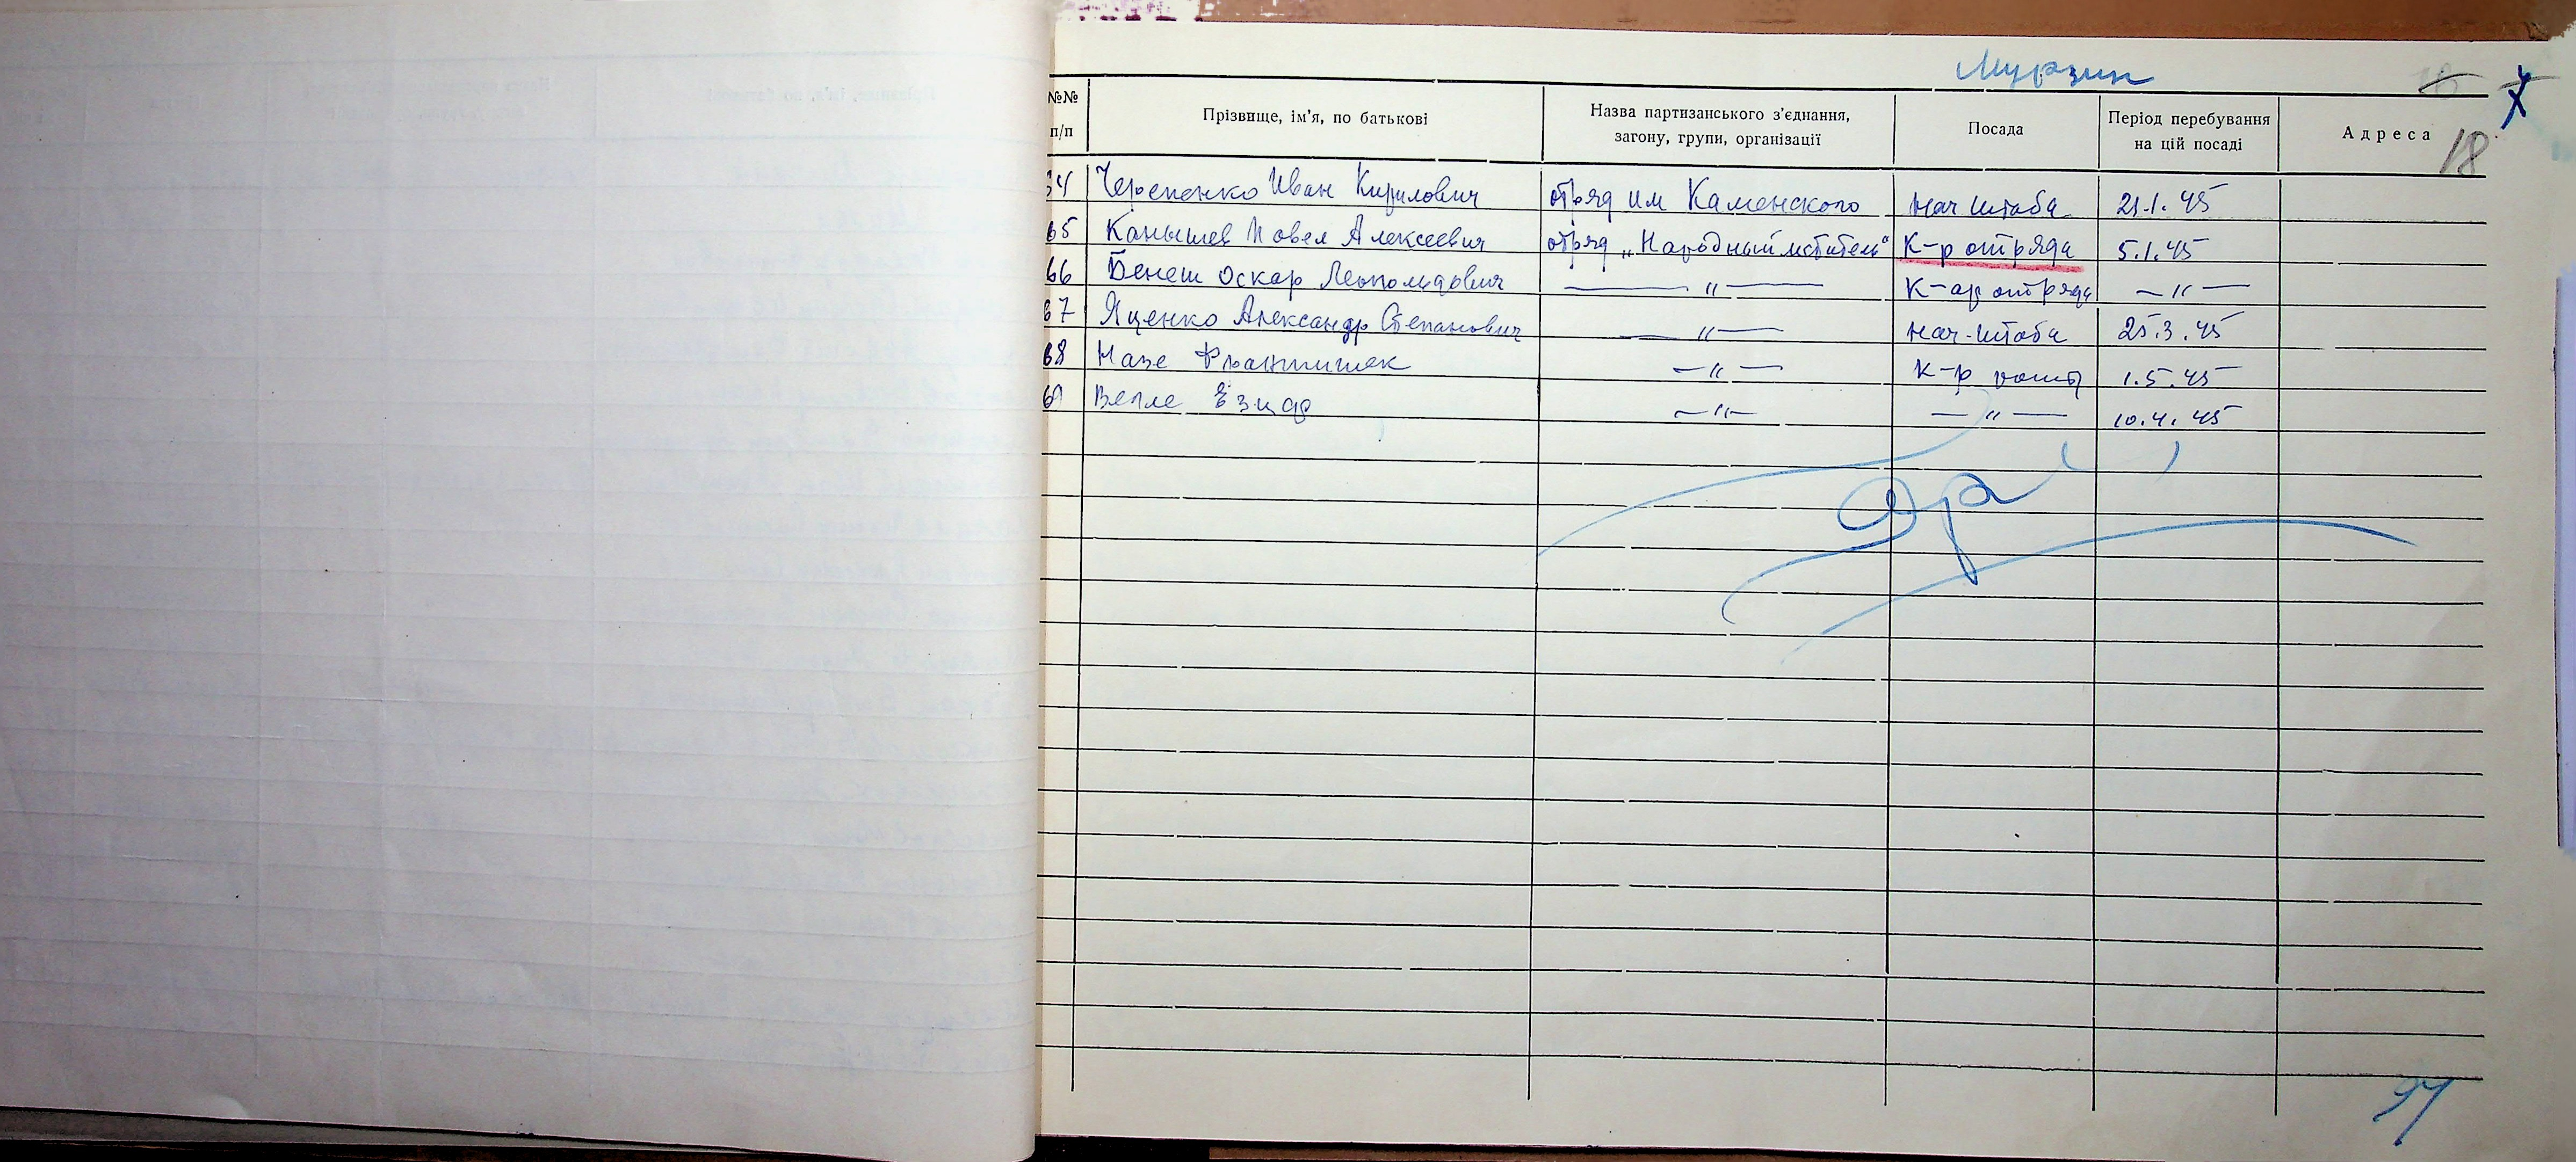 Мурзин
18
№№ п/п Прізвище, ім'я, по батькові Назва партизанського з'єднання, загону, групи, організації Посада Період перебування на цій посаді Адреса
64 Черепенко Иван Кирилович отряд им Каменского Нач штаба 21.1.45
65 Канышев Повел Алексеевич отряд „Народный мститель" К-р отряда 5.1.45
66 Бенеш Оскар Леопольдович — " — К-ар отряда — " —
67 Яценко Александр Степанович — " — Нач-штаба 25.3.45
68 Назе Франтишек — " — К-р роты 1.5.45
69 — " — — " — 10.4.45
94